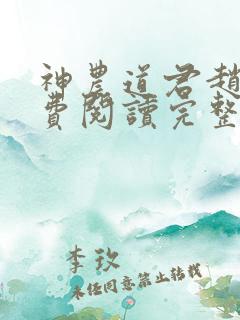 神農道君趙
費閱讀完整
李玫
未經同意禁止轉載